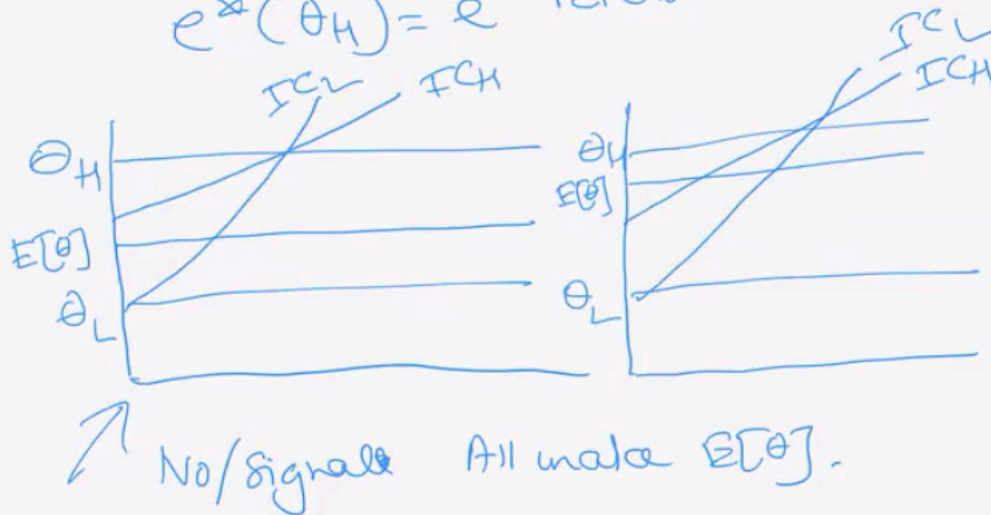 e*(θH) = e
ICL ICH
θH
E[θ]
θL
ICL
ICH
θH
E[θ]
θL
No/Signals All make E[θ].